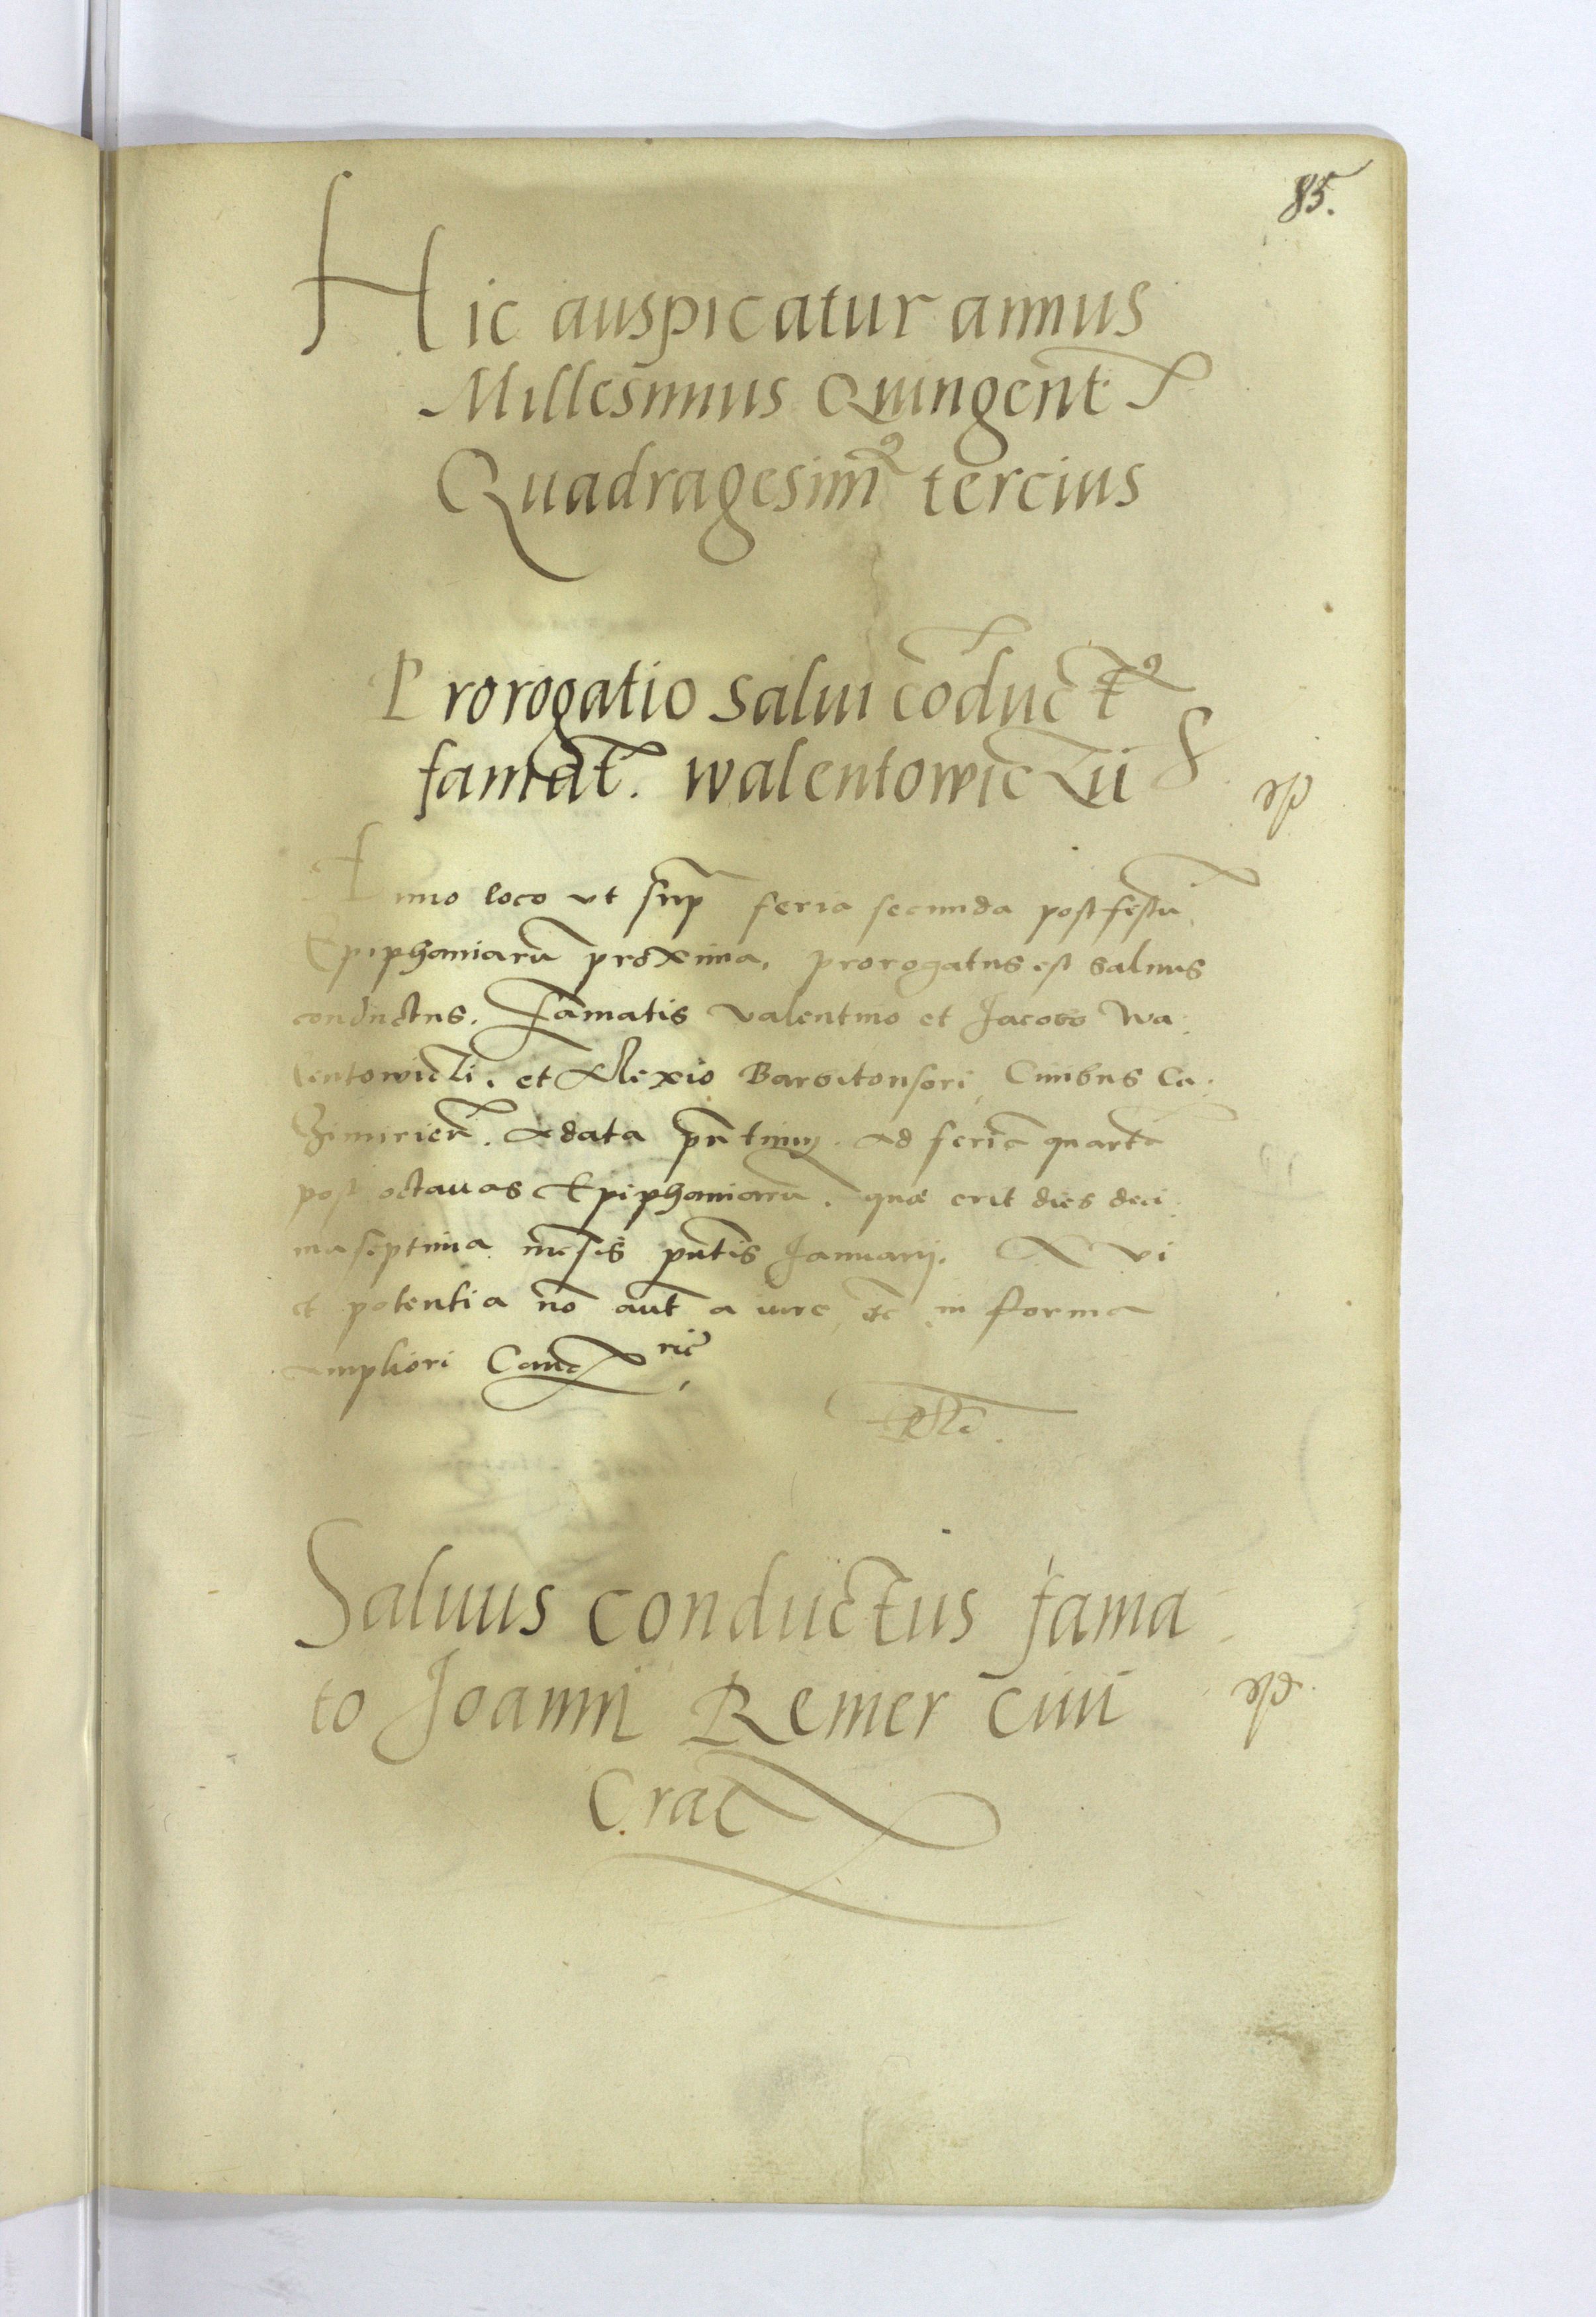 85.
Hic auspicatur annus
Millesimus Quingent
Quadragesim9 tercius
Prorogatio salui cōduct9
famat. walentowiczii
Anno loco vt sup feria secunda post festū
Epiphaniarū proxima, prorogatus est saluus
conductus. famatis valentino et Jacobo wa
lentowiczi. et Alexio Barbitonsori Ciuibus Ca
zimirien̄. A data pn̄tium. ad feriā quartā
post octauas Epiphaniarū. quae erit dies deci
ma septima mēsis pn̄tis Januarij. A vi
et potentia nō aut̄ a iure etc in forma
ampliori Canc rie
Saluus conductus fama
to Joanni Remer ciui
Crac